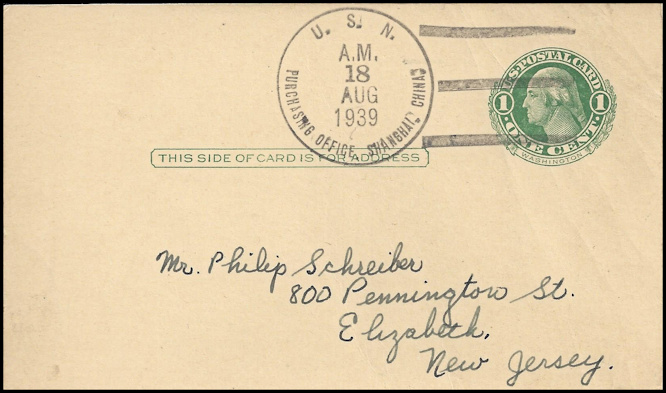 U. S. N.
A.M.
18
AUG
1939
PURCHASING OFFICE, SHANGHAI, CHINA
U.S. POSTAL CARD
1 1
ONE CENT
WASHINGTON
THIS SIDE OF CARD IS FOR ADDRESS
Mr. Philip Schreiber
800 Pennington St.
Elizabeth,
New Jersey.